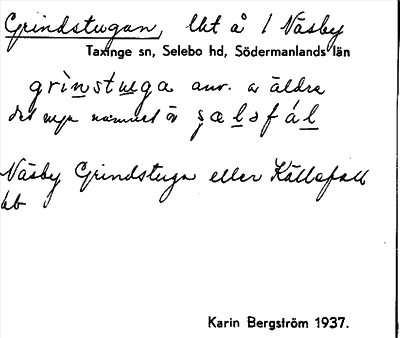 Grindstugan, lht å 1 Näsby
Taxinge sn, Selebo hd, Södermanlands län
grìnstuga anv. av äldre
det nya namnet är
Näsby Grindstuga eller Källefall
hb
Karin Bergström 1937.